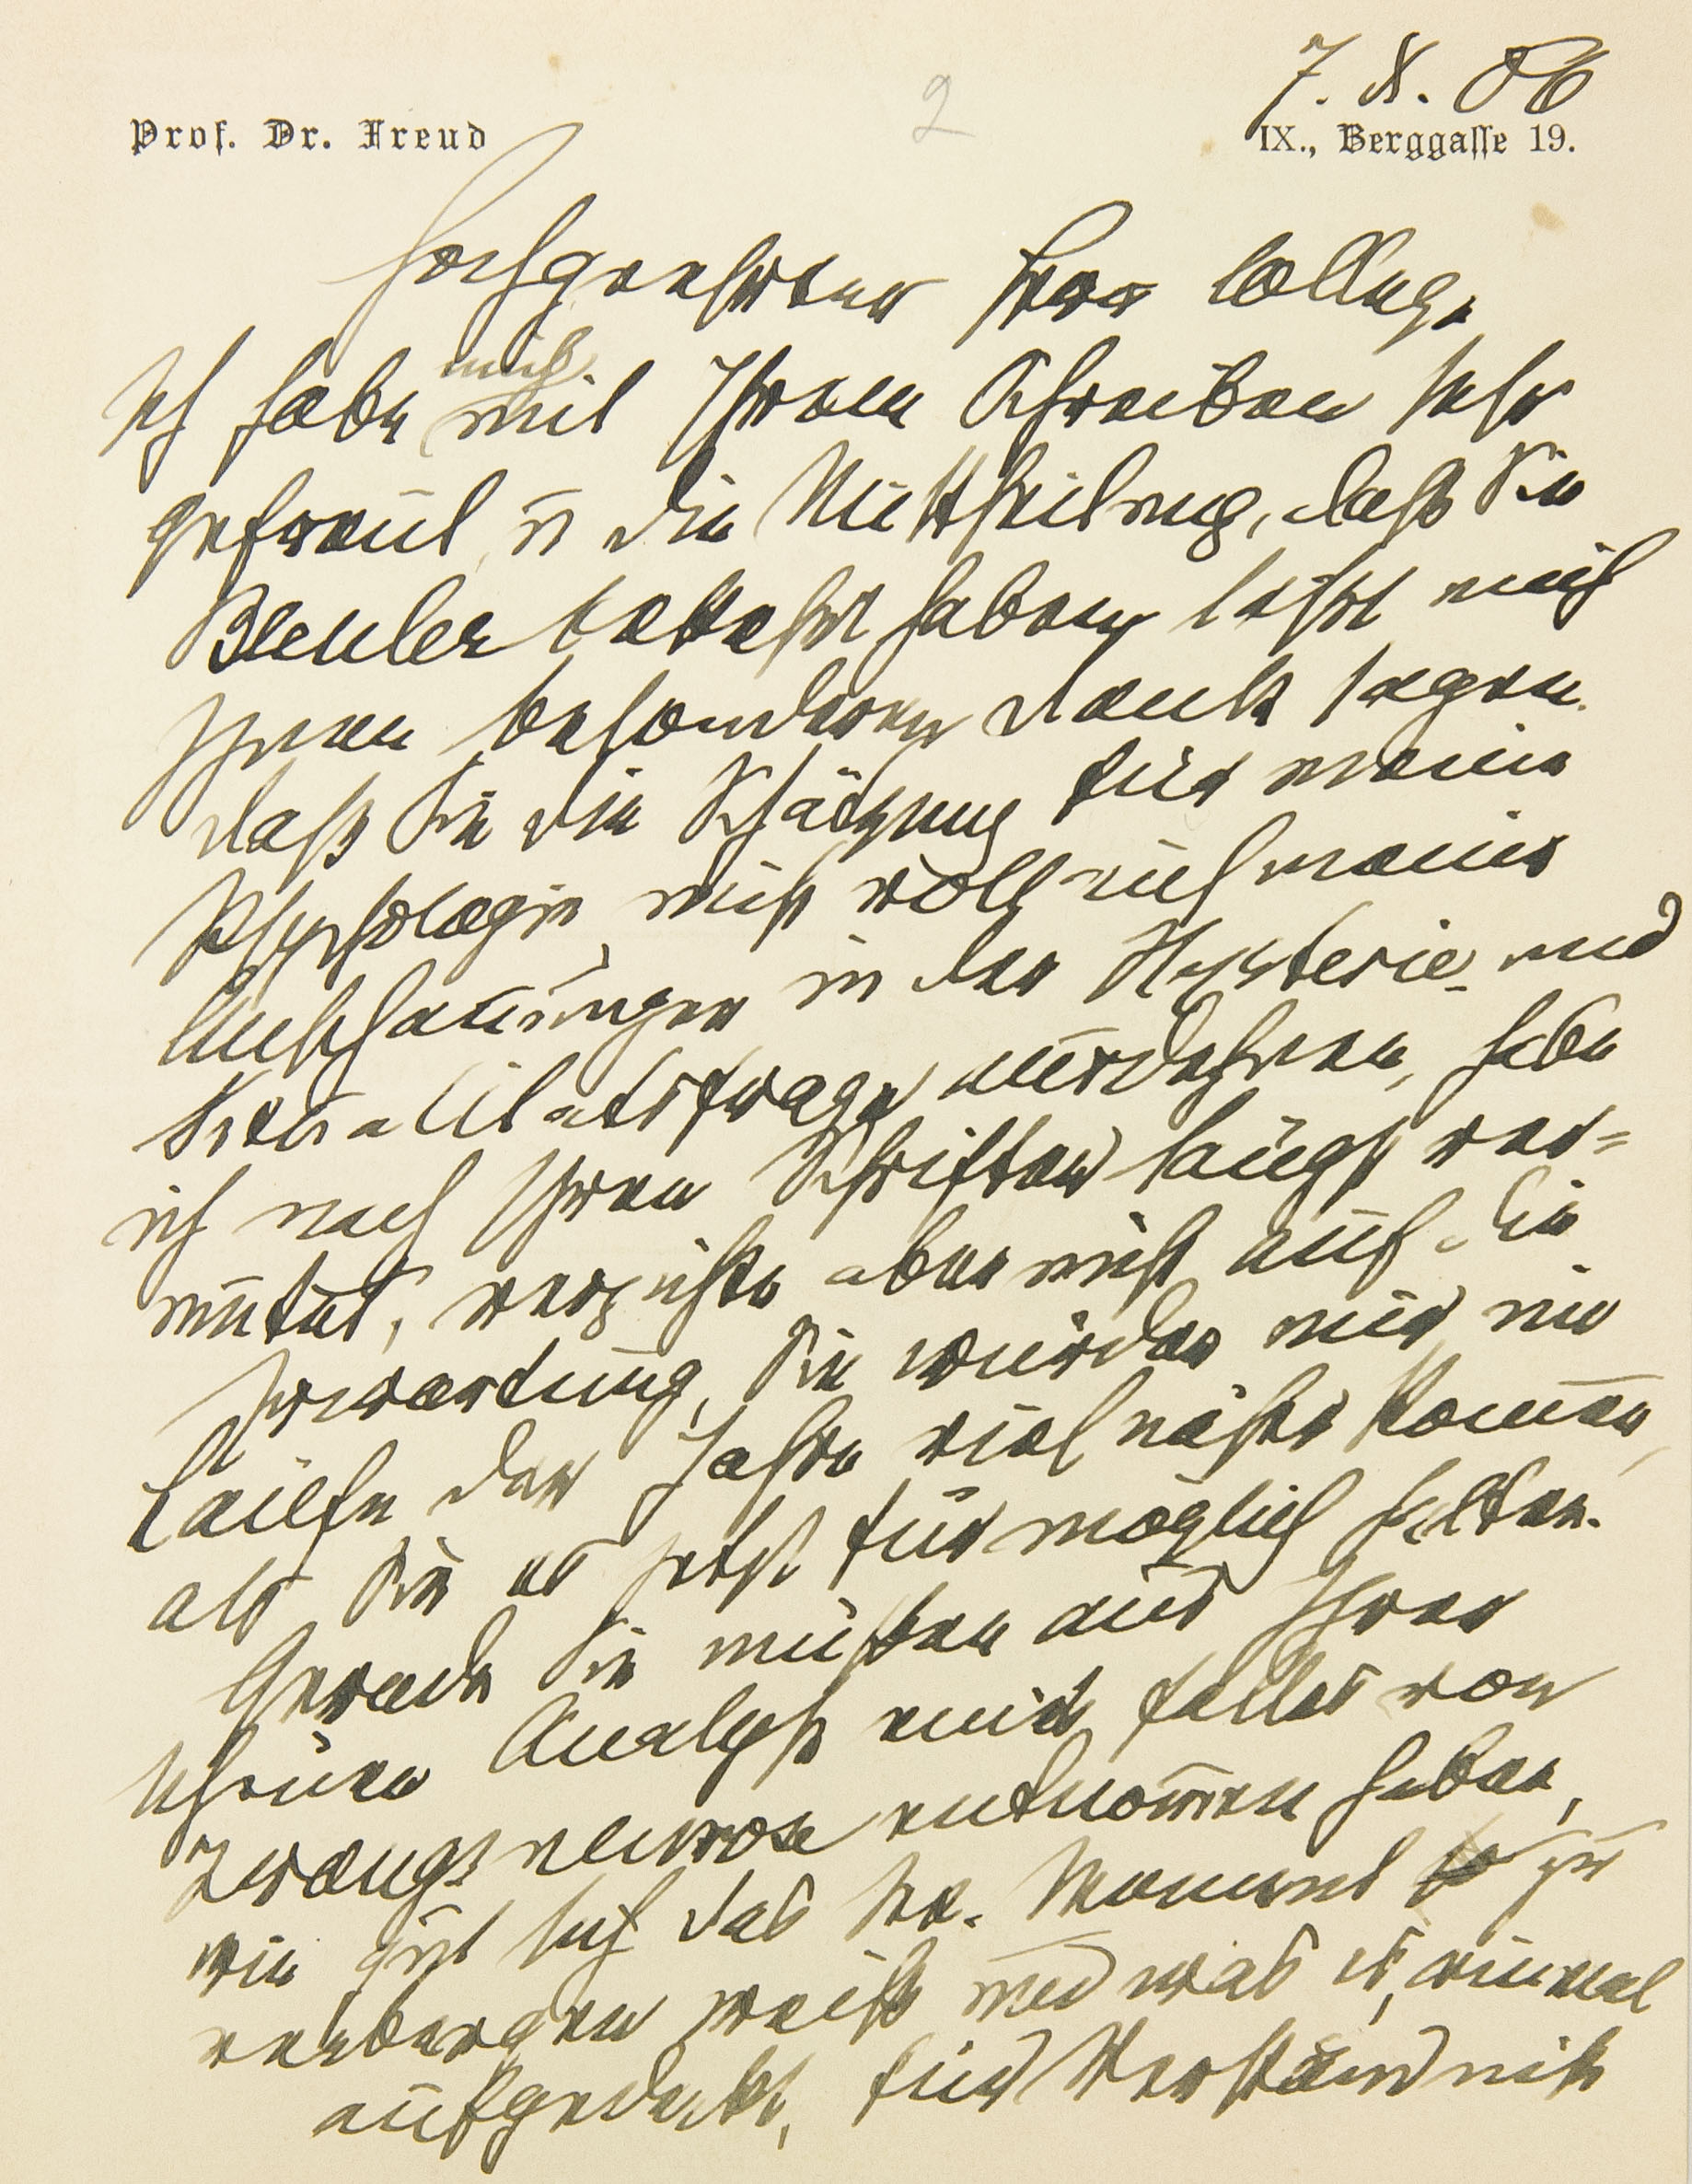 7. X. 06
2
Prof. Dr. Freud
IX., Berggasse 19.
Hochgeehrter Herr College
Ich habe mich
mit Ihrem Schreiben sehr
gefreut u die Mittheilung, daß Sie
Bleuler bekehrt haben, läßt mich
Ihnen besonderen Dank sagen.
Daß Sie die Schätzung für meine
Psychologie nicht voll auf meine
Anschauungen in der Hysterie- und
Sexualitätsfrage ausdehnen, habe
ich nach Ihren Schriften längst ver=
mutet, verzichte aber nicht auf die
Erwartung, Sie würden mir im
Laufe der Jahre viel näher kom̄en,
als Sie es jetzt für möglich halten.
Gerade Sie müßen aus Ihrer
schönen Analyse eines Falles von
Zwangsneurose entnom̄en haben,
wie gut sich das sex. Moment zu
verbergen weiß und was es, einmal
aufgedeckt, für Verständniß